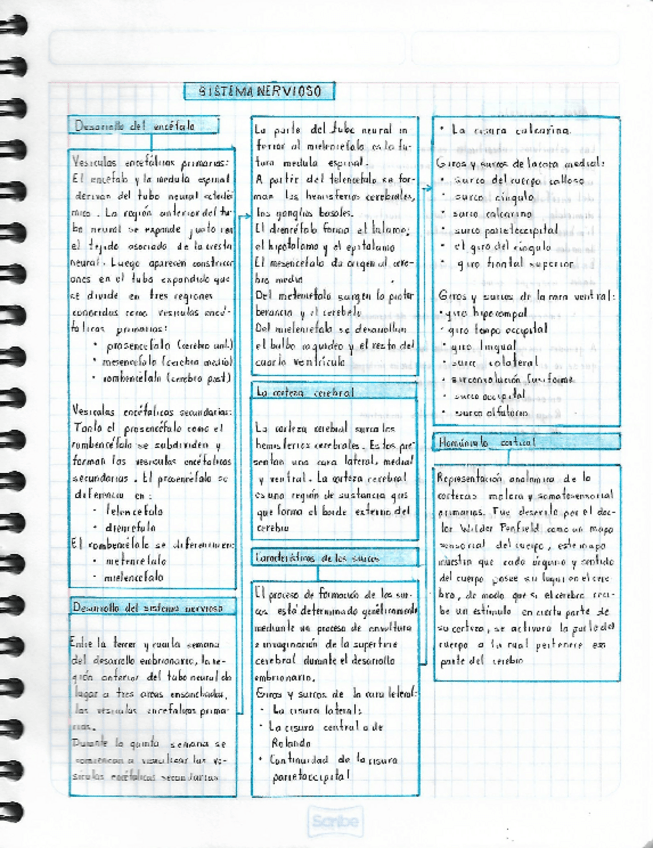 SISTEMA NERVIOSO
Desarrollo del encéfalo
Vesículas encefálicas primarias:
El encéfalo y la medula espinal
derivan del tubo neural ectodér
mico. La región anterior del tu
bo neural se expande junto con
el tejido asociado de la cresta
neural. Luego aparecen constricci
ones en el tubo expandido que
se divide en tres regiones
conocidas como vesículas encé-
falicas primarias:
• prosencéfalo (cerebro ant.)
• mesencéfalo (cerebro medio)
• rombencéfalo (cerebro post)
Vesículas encefálicas secundarias:
Tanto el prosencéfalo como el
rombencéfalo se subdividen y
forman las vesículas encefálicas
secundarias. El prosencéfalo se
diferencia en:
• telencéfalo
• diencéfalo
El rombencéfalo se diferencia en:
• metencéfalo
• mielencéfalo
Desarrollo del sistema nervioso
Entre la tercer y cuarta semana
del desarrollo embrionario, la re-
gión anterior del tubo neural da
lugar a tres areas ensanchadas,
las vesículas encefalicas prima-
rias.
Durante la quinta semana se
comienzan a visualizar las ve-
sículas encéfalicas secundarias
La parte del tubo neural in
ferior al mielencéfalo es la fu-
tura medula espinal.
A partir del telencéfalo se for-
man los hemisferios cerebrales,
los ganglios basales.
El diencéfalo forma el talamo,
el hipotálamo y el epitalamo
El mesencéfalo da origen al cere-
bro medio
Del metencéfalo surgen la protu
berancia y el cerebelo
Del mielencéfalo se desarrollan
el bulbo raquídeo y el resto del
cuarto ventrículo
La corteza cerebral
La corteza cerebral surca los
hemisferios cerebrales. Estos pre
sentan una cara lateral, medial
y ventral. La corteza cerebral
es una región de sustancia gris
que forma el borde externo del
cerebro
Características de los surcos
El proceso de formación de los sur-
cos está determinado genéticamente
mediante un proceso de envoltura
e invaginación de la superficie
cerebral durante el desarrollo
embrionario.
Giros y surcos de la cara lateral:
• La cisura lateral:
• La cisura central o de
Rolando
• Continuidad de la cisura
parietoccipital
• La cisura calcarina.
Giros y surcos de la cara medial:
• surco del cuerpo calloso
• surco cíngulo
• surco calcarino
• surco parietoccipital
• el giro del cíngulo
• giro frontal superior
Giros y surcos de la cara ventral:
• giro hipocampal
• giro tempo occipital
• giro lingual
• surco colateral
• circonvolución fusiforme
• surco occipital
• surco olfatorio
Homúnculo cortical
Representación anatómica de la
cortezas motora y somatosensorial
primarias. Fue descrito por el doc-
tor Wilder Penfield como un mapa
sensorial del cuerpo, este mapa
muestra que cada órgano y sentido
del cuerpo posee su lugar en el cere
bro, de modo que si el cerebro reci-
be un estímulo en cierta parte de
su corteza, se activara la parte del
cuerpo a la cual pertenece esa
parte del cerebro
Scribe